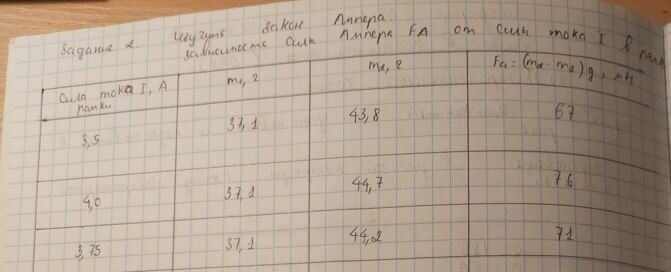 Задание 2. Изучить закон Ампера.
зависимость силы Ампера FA от силы тока I в рамке
Сила тока I, А рамки | m1, г | m2, г | Fa = (m2 - m1) g, мН
3,5 | 37,1 | 43,8 | 67
4,0 | 37,1 | 44,7 | 76
3,75 | 37,1 | 44,2 | 71